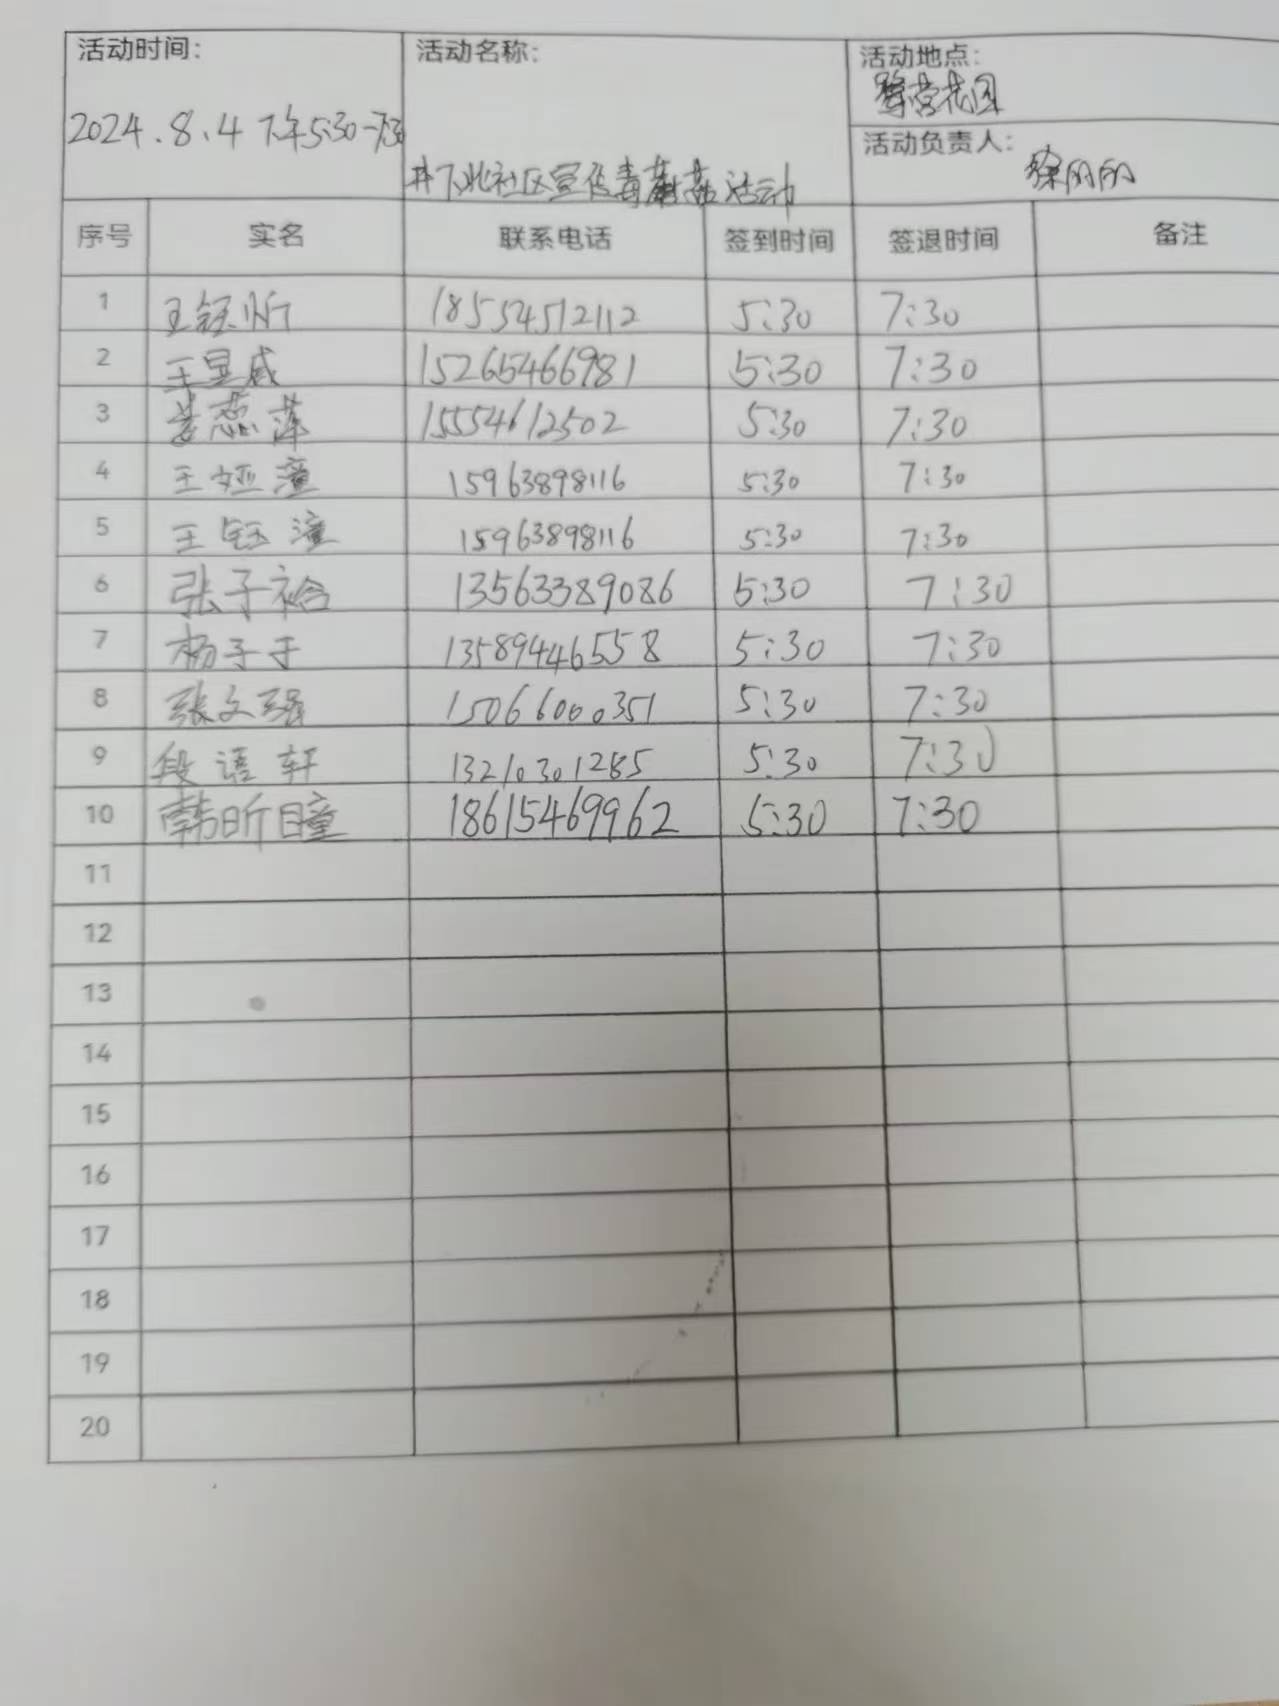 活动时间： 活动名称： 活动地点：
2024.8.4 下午5:30-7:30 井下北社区宣传毒蘑菇活动 花园
活动负责人：
徐丽丽
序号 实名 联系电话 签到时间 签退时间 备注
1 王钰昕 18554512112 5:30 7:30
2 王昱威 15265466981 5:30 7:30
3 姜蕊莲 15554612502 5:30 7:30
4 王娅潼 15963898116 5:30 7:30
5 王钰潼 15963898116 5:30 7:30
6 张子祫 13563389086 5:30 7:30
7 杨子于 13589446558 5:30 7:30
8 张文强 15066000351 5:30 7:30
9 段语轩 13210301285 5:30 7:30
10 韩昕瞳 18615469962 5:30 7:30
11
12
13
14
15
16
17
18
19
20